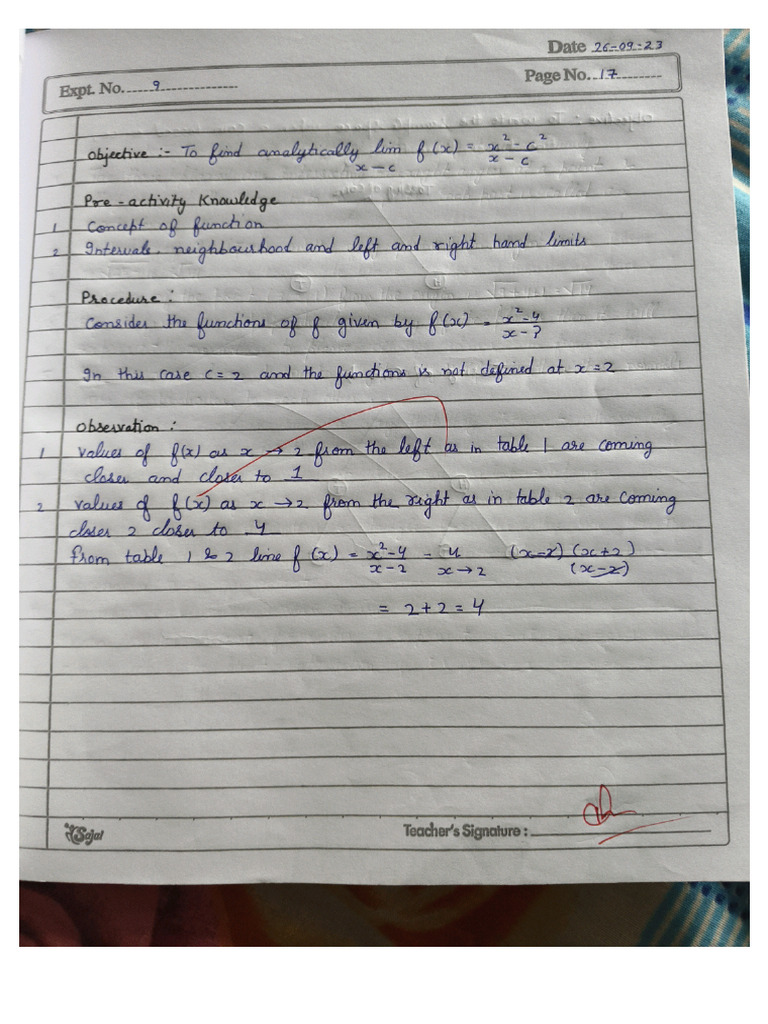 Date 26-09-23
Expt. No. 9
Page No. 17
Objective :- To find analytically lim f(x) = x² - c²
x - c x - c
Pre-activity Knowledge
1 Concept of function
2 Intervals, neighbourhood and left and right hand limits
Procedure :
Consider the functions of f given by f(x) = x² - 4
x - ?
In this case c = 2 and the functions is not defined at x = 2
Observation :
1 values of f(x) as x → 2 from the left as in table 1 are coming
closer and closer to 1
2 values of f(x) as x → 2 from the right as in table 2 are coming
closer 2 closer to 4
from table 1 & 2 line f(x) = x² - 4 = 4 (x-2) (x+2)
x - 2 x → 2 (x-2)
= 2 + 2 = 4
Sajal
Teacher's Signature :